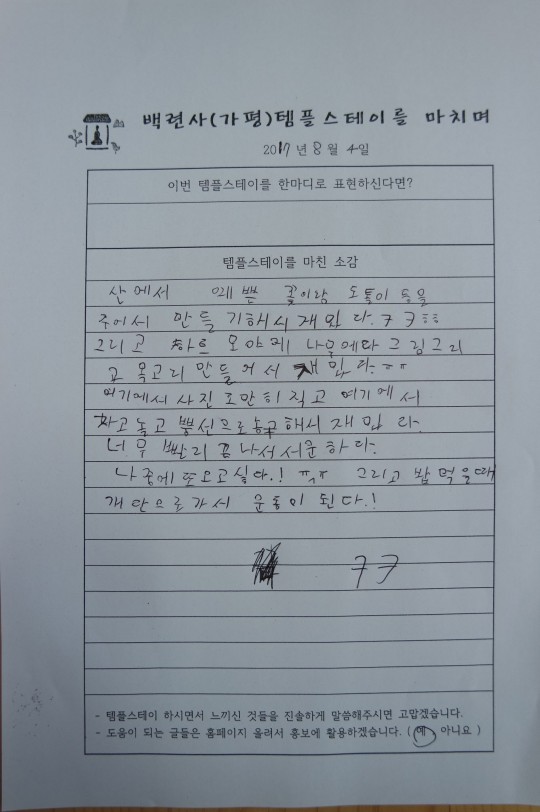 백련사(가평)템플스테이를 마치며
2017년 8월 4일
이번 템플스테이를 한마디로 표현하신다면?
템플스테이를 마친 소감
산에서 예쁜 꽃이랑 도톨이 등을
주어서 만들기해서 재밌다.ㅋㅋ
그리고 하트 모야에 나무에다 그림그리
고 목고리 만들어서 재밌다.ㅠㅠ
여기에서 사진도 만히 직고 여기에서
자고 놀고 뿡선으로 해서 재밌다.
너무 빨리 끝나서 서운하다.
나중에 또오고싶다.! ㅠㅠ 그리고 밥 먹을때
개단으로가서 운동이 된다.!
ㅋㅋ
- 템플스테이 하시면서 느끼신 것들을 진솔하게 말씀해주시면 고맙겠습니다.
- 도움이 되는 글들은 홈페이지 올려서 홍보에 활용하겠습니다. ( 예 아니요 )